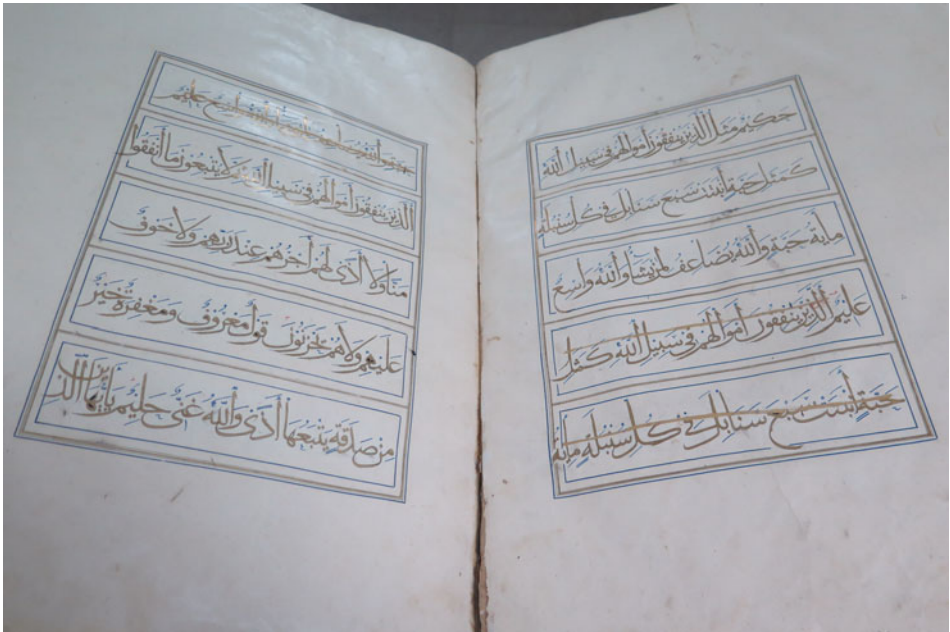 حكيم مثل الذين ينفقون أموالهم في سبيل الله
كمثل حبة أنبتت سبع سنابل في كل سنبلة
مائة حبة والله يضاعف لمن يشاء والله واسع
عليم الذين ينفقون أموالهم في سبيل الله كمثل
حبة أنبتت سبع سنابل في كل سنبلة مائة
حبة والله يضاعف لمن يشاء والله واسع عليم
الذين ينفقون أموالهم في سبيل الله ثم لا يتبعون ما أنفقوا
منا ولا أذى لهم أجرهم عند ربهم ولا خوف
عليهم ولا هم يحزنون قول معروف ومغفرة خير
من صدقة يتبعها أذى والله غني حليم يا أيها الذين